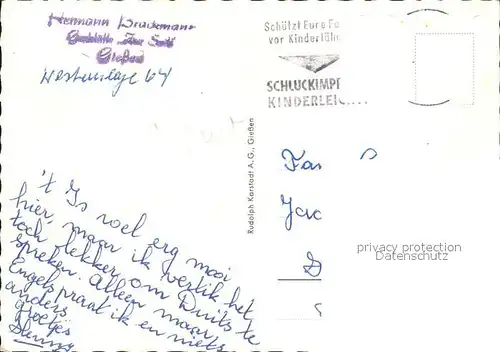 Hermann
Gießen
Westanlage 64
Schützt Eure Fa
vor Kinderläh
SCHLUCKIMPF
KINDERLEIC
Rudolph Karstadt A.G., Gießen
't Is voel erg mooi
hier, maar ik vertik het
toch lekker om Duits te
spreken. Alleen maar
Engels praat ik en niets
anders
groetjes
Fa
Jac
privacy protection
Datenschutz